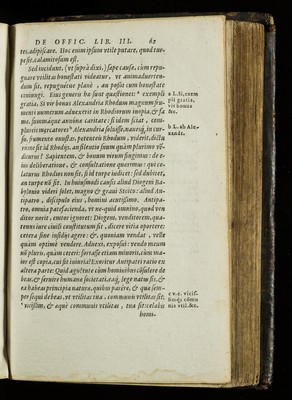 DE OFFIC. LIB. III. 62
tes, adipiscare. Hoc enim ipsum vtile putare, quod tur-
pe sit, calamitosum est.
Sed incidunt, (vt suprà dixi,) sæpe causæ, cùm repu-
gnare vtilitas honestati videatur, vt animaduerten-
dum sit, repugnétne planè, an possit cum honestate
coniungi. Eius generis hæ sunt quæstiones: a exempli
gratia, Si vir bonus Alexandria Rhodum magnum fru-
menti numerum aduexerit in Rhodiorum inopia, & fa
me, summáque annonæ caritate: si idem sciat, com-
plures mercatores b Alexandria soluisse, nauésq; in cur-
su, frumento onustas, petenteis Rhodum, viderit, dictú
rúsne sit id Rhodijs, an silentio suum quàm plurimo vẽ-
diturus? Sapientem, & bonum virum fingimus: de e-
ius deliberatione, & consultatione quærimus: qui ce-
laturus Rhodios non sit, si id turpe iudicet: sed dubitet,
an turpe nõ sit. In huiusmodi causis aliud Diogeni Ba-
bylonio videri solet, magno & graui Stoico: aliud An-
tipatro, discipulo eius, homini acutissimo. Antipa-
tro, omnia patefacienda, vt ne quid omnino, quod ven
ditor norit, emtor ignoret: Diogeni, venditorem, qua-
tenus iure ciuili constitutum sit, dicere vitia oportere:
cetera sine insidijs agere: &, quoniam vendat, velle
quàm optimè vendere. Aduexi, exposui: vendo meum
nõ pluris, quàm ceteri: fortasse etiam minoris, cùm ma-
ior est copia, cui fit iniuria? Exoritur Antipatri ratio ex
altera parte: Quid ais? tu cùm hominibus cõsulere de-
beas, & seruire humanæ societati,
& ex habeas principia naturæ, quibus parêre, & quæ sem-
per sequi debeas, vt vtilitas tua, communis vtilitas sit,
c vicissim, & æquè communis vtilitas, tua sit: celabis
homi-
a L. Si, exem
pli gratia,
vir bonus
&c.
b L. ab Ale-
xandr.
c v.c. vicis-
simq; cõmu
nis vtil. &c.